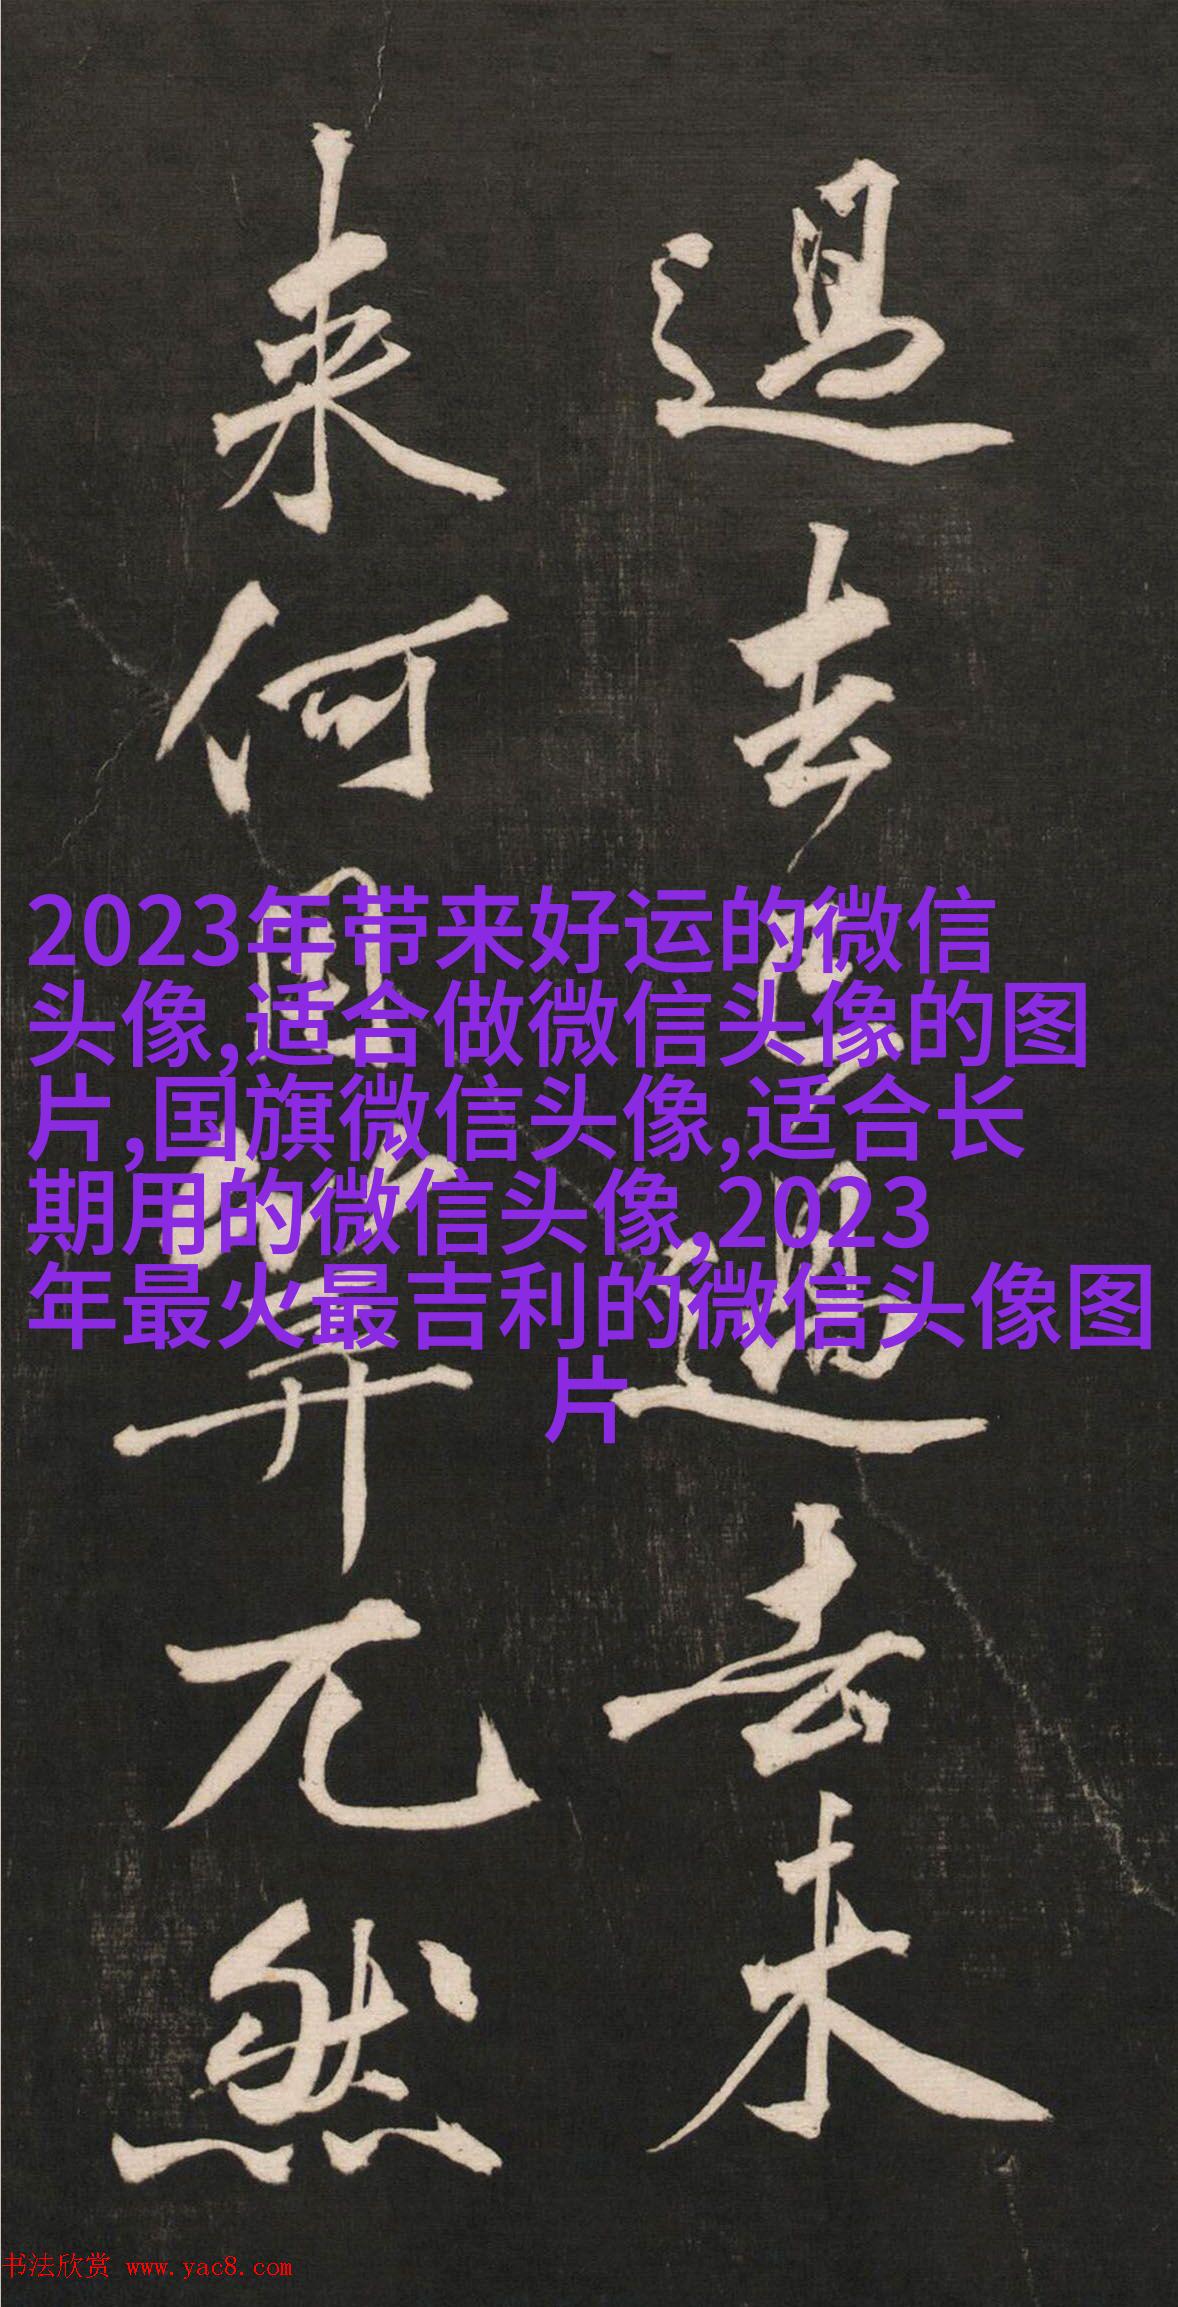 過去已過去未
来何用筭兀然
2023年带来好运的微信
头像,适合做微信头像的图
片,国旗微信头像,适合长
期用的微信头像,2023
年最火最吉利的微信头像图
片
书法欣赏 www.yac8.com